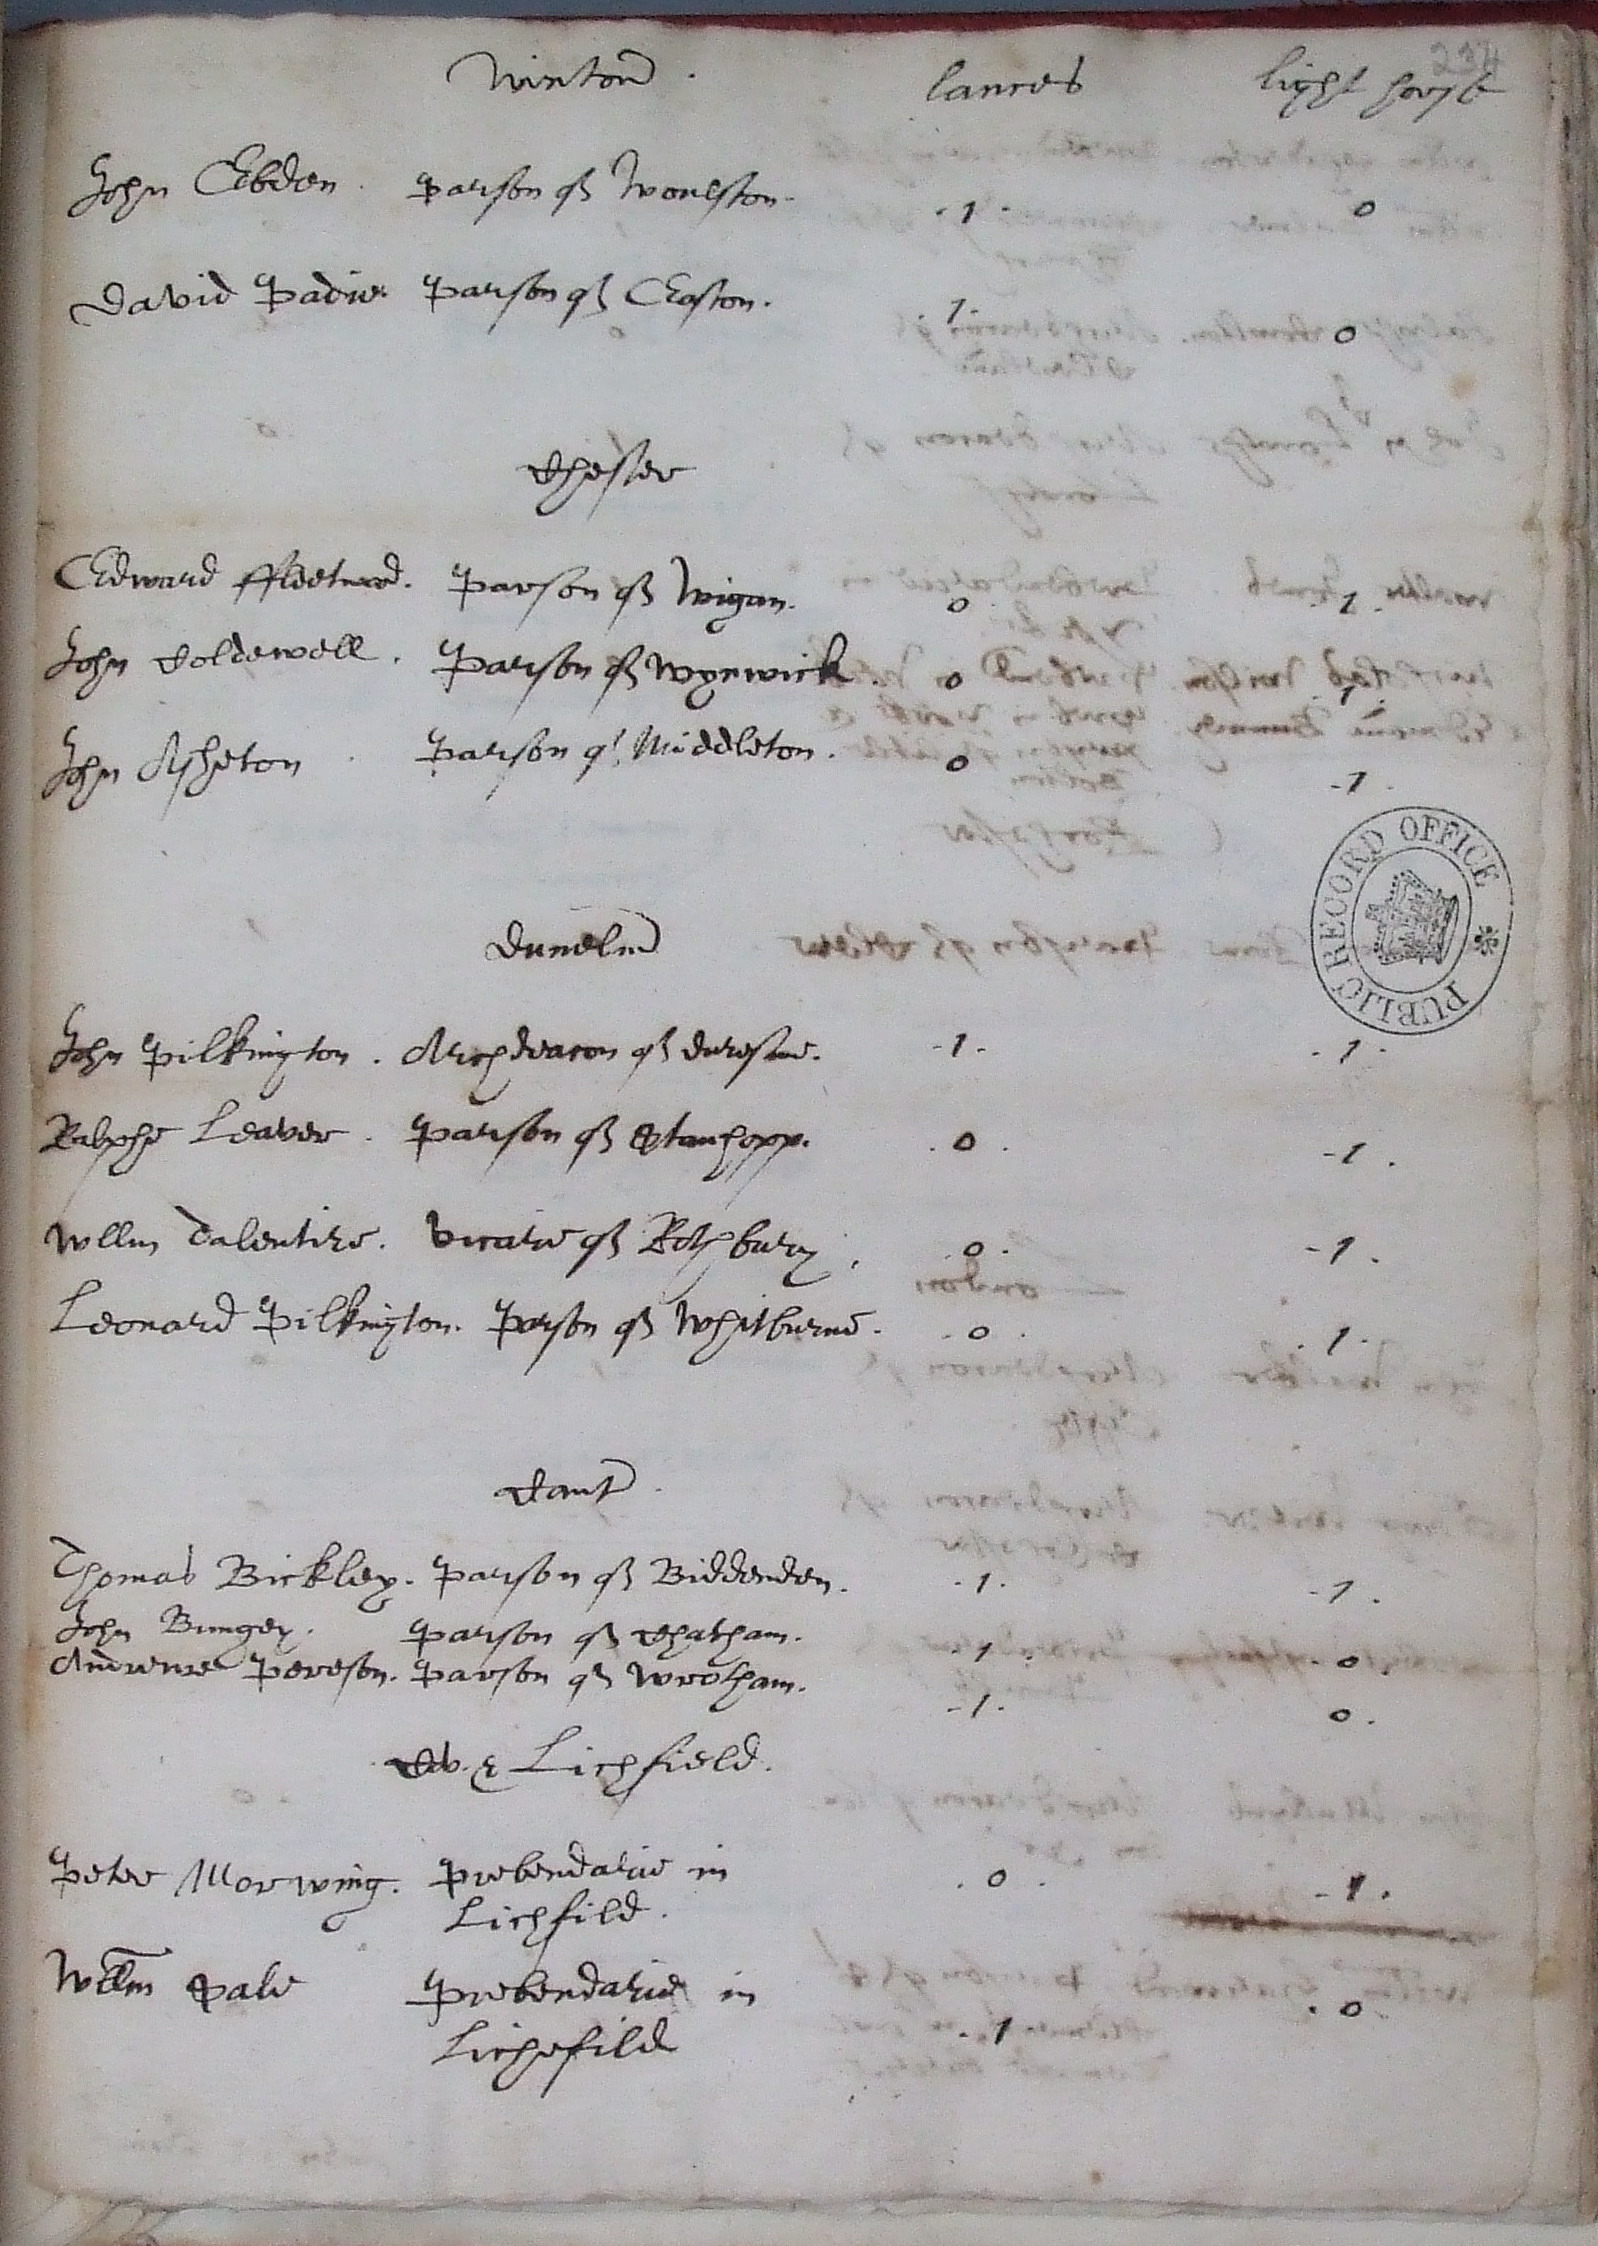 234
Winton. lances light horse
John Ebden. parson of Wonston. -1- 0
David Padie parson of Easton. .1. 0
Chester
Edward ffleetwood. Parson of Wigan. 0 .1.
John Coldewell. Parson of Wynwick. 0 .1.
John Assheton. Parson of Middleton. 0 -1.
PUBLIC RECORD OFFICE
Dunelm
John Pilkington. Archdeacon of duresme. -1- -1-
Ralphe Leaver. Parson of Stanhopp. .0. -1.
Wllm Dalentire. Vicarie of Rothbury. .0. -1.
Leonard Pilkington. Parson of Whitburne. .0. .1.
Cant.
Thomas Bickley. Parson of Biddenden. -1. -1.
John Bungey. Parson of Chatham. -1. .0.
Andrewe Pereson. Parson of Wrotham. -1. 0.
Cov. & Lichfield.
Peter Morwing. Prebendarie in .0. -1.
Lichfild.
Wllm Prebendarie in .1 .0.
Lichefild